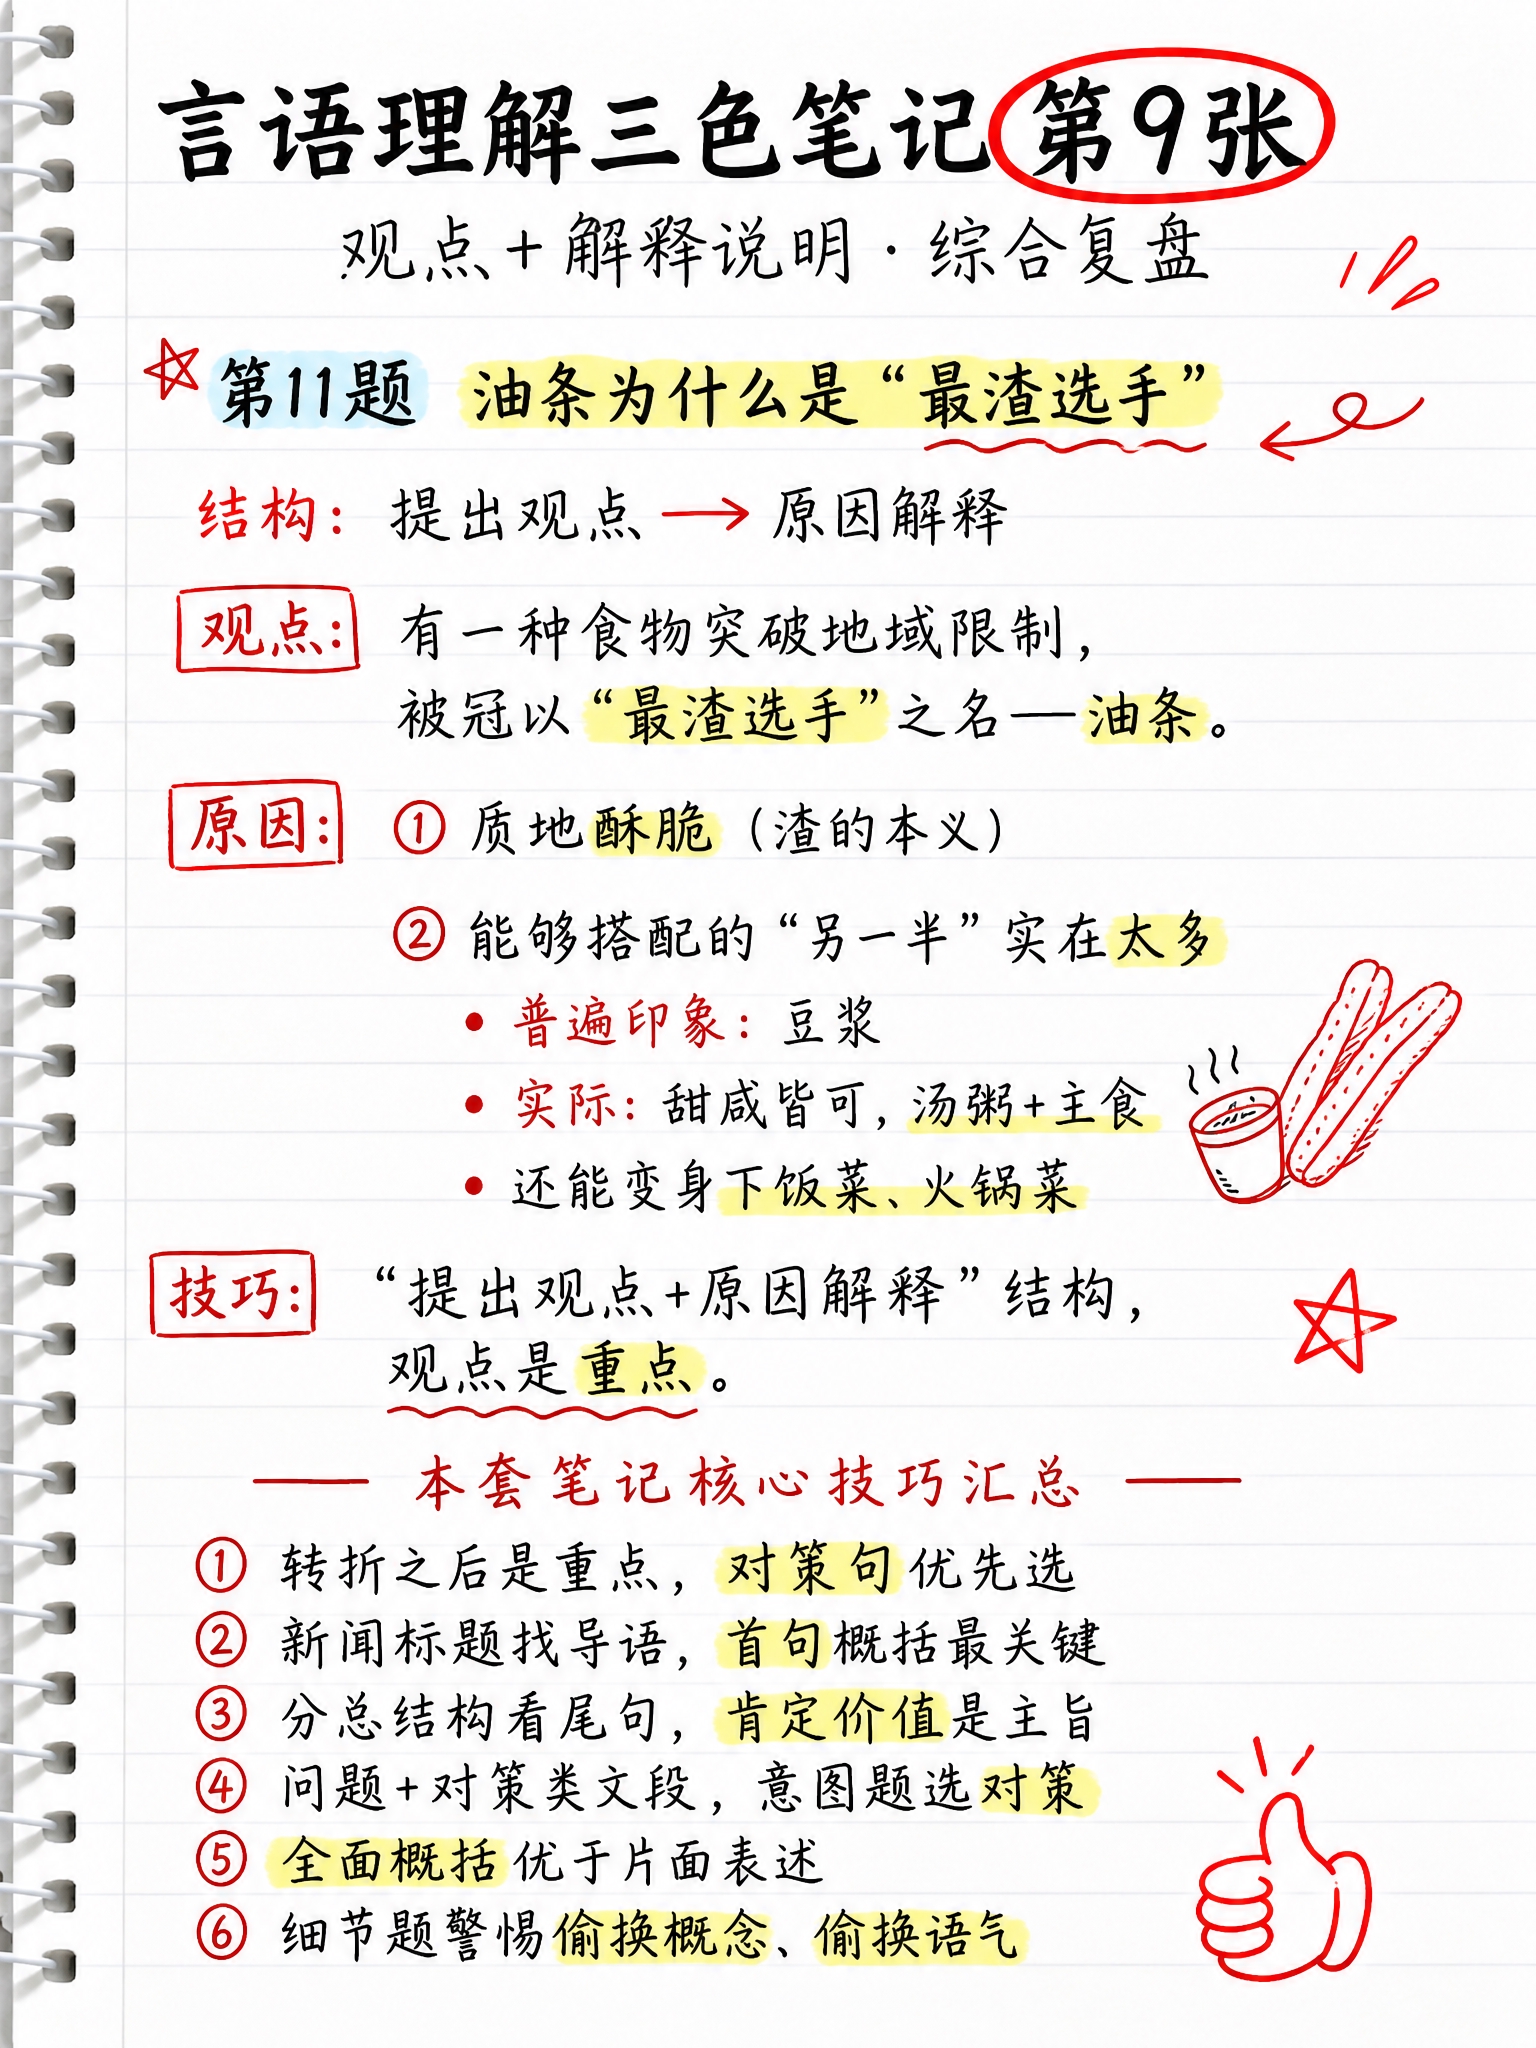 言语理解三色笔记 第9张
观点+解释说明·综合复盘
第11题 油条为什么是“最渣选手”
结构：提出观点→原因解释
观点：有一种食物突破地域限制，
被冠以“最渣选手”之名—油条。
原因：①质地酥脆（渣的本义）
②能够搭配的“另一半”实在太多
•普遍印象：豆浆
•实际：甜咸皆可，汤粥+主食
•还能变身下饭菜、火锅菜
技巧：“提出观点+原因解释”结构，
观点是重点。
本套笔记核心技巧汇总
①转折之后是重点，对策句优先选
②新闻标题找导语，首句概括最关键
③分总结构看尾句，肯定价值是主旨
④问题+对策类文段，意图题选对策
⑤全面概括优于片面表述
⑥细节题警惕偷换概念、偷换语气